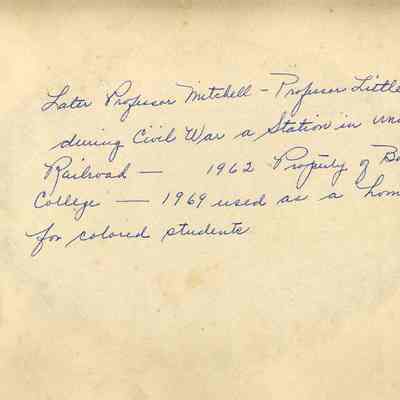 Later Professor Mitchell - Professor Little
during Civil War a Station in un
Railroad — 1962 Property of Bo
College — 1969 used as a hom
for colored students